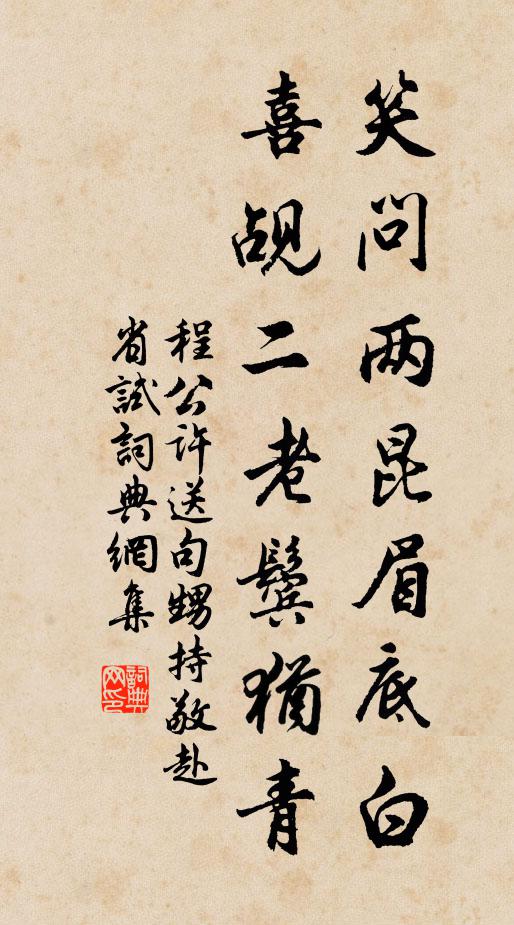 笑问两昆眉底白
喜觇二老鬓犹青
程公许送句甥持敬赴
省試詞典網集
詞典网印